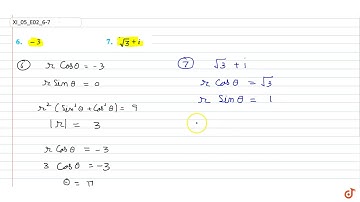 XI_05_E02_6-7
6. -3
7. √3 + i
⑥
r Cosθ = -3
r Sinθ = 0
r² (Sin²θ + Cos²θ) = 9
|r| = 3
r Cosθ = -3
3 Cosθ = -3
θ = π
⑦ √3 + i
r Cosθ = √3
r Sinθ = 1